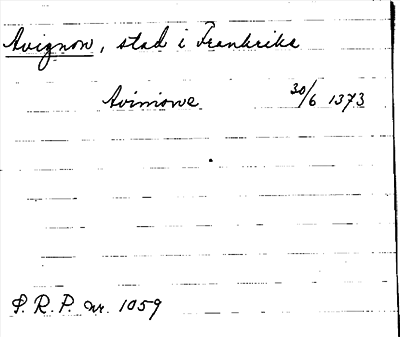 Avignon, stad i Frankrike
Avinione 30/6 1373
S.R.P. nr. 1059